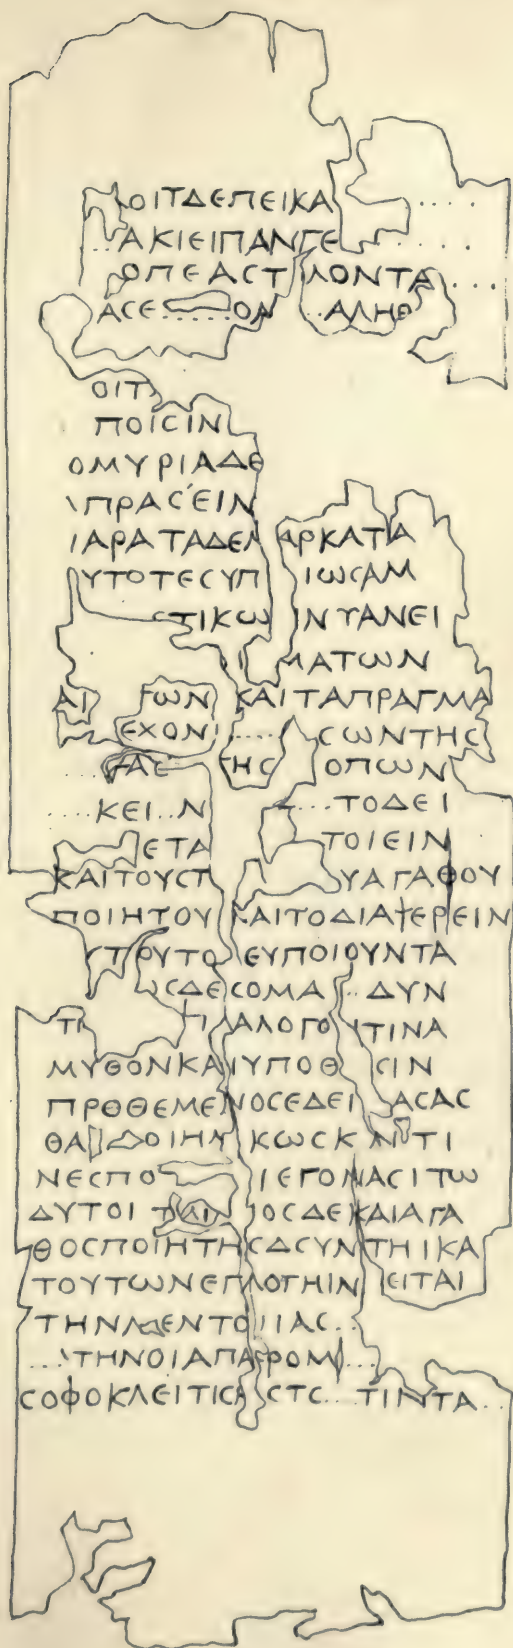 ΟΙΤΔΕΠΕΙΚΑ ....
..ΑΚΙΕΙΠΑΝΓΕ ....
ΟΠΕΑϹΤ ΛΟΝΤΑ ...
ΑϹΕ......ΟΑ ..ΑΛΗΘ
ΟΙΤ
ΠΟΙϹΙΝ
ΟΜΥΡΙΑΔΕ
ΠΡΑϹΕΙΝ
ΙΑΡΑΤΑΔΕΛ ΑΡΚΑΤΑ
ΥΤΟΤΕϹΥΠ ΙΩϹΑΜ
ϹΤΙΚΩ ΙΝΥΑΝΕΙ
ΜΑΤΩΝ
ΑΙ ΓΩΝ ΚΑΙΤΑΠΡΑΓΜΑ
ΕΧΟΝ ..... ϹΩΝΤΗϹ
...ΑϹ ΤΗϹ ΟΠΩΝ
....ΚΕΙ..Ν ....ΤΟΔΕΙ
ΕΤΑ ΤΟΙΕΙΝ
ΚΑΙΤΟΥϹΤ ΥΑΓΑΘΟΥ
ΠΟΙΗΤΟΥ ΚΑΙΤΟΔΙΑΦΕΡΕΙΝ
ΥΤΟΥΤΟ ΕΥΠΟΙΟΥΝΤΑ
ϹΔΕϹΟΜΑ ΔΥΝ
ΤΙ ΠΑΛΟΓΟΥΤΙΝΑ
ΜΥΘΟΝΚΑΙΥΠΟΘ ϹΙΝ
ΠΡΟΘΕΜΕΝΟϹΕΔΕΙ ΑϹΑϹ
ΘΑΙ ΔΟΙΗΛ ΚΩϹΚ ΝΤΙ
ΝΕϹΠΟ ΙΕΓΟΝΑϹΙΤΩ
ΔΥΤΟΙ ΤΛΙΝ ΙΟϹΔΕΚΑΙΑΓΑ
ΘΟϹΠΟΙΗΤΗϹΔϹΥΝΤΗΙΚΑ
ΤΟΥΤΩΝΕΓΛΟΓΗΙΝ ΕΙΤΑΙ
ΤΗΝΛ ΕΝΤΟΙΙΑϹ..
...ΤΗΝΟΙΑΠΑΦΟΜ ...
ϹΟΦΟΚΛΕΙΤΙϹΑ ϹΤϹ...ΤΙΝΤΑ..